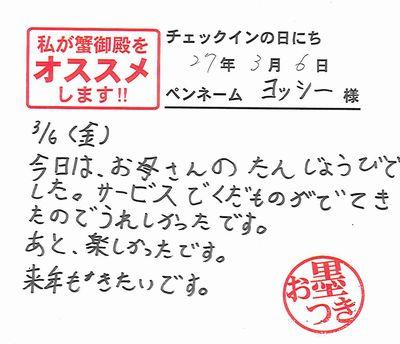 私が蟹御殿を
オススメ
します!!
チェックインの日にち
27年 3月 6日
ペンネーム ヨッシー 様
3/6(金)
今日は、お母さんのたんじょうびで
した。サービスでくだものがでてき
たのでうれしかったです。
あと、楽しかったです。
来年もきたいです。
お墨つき